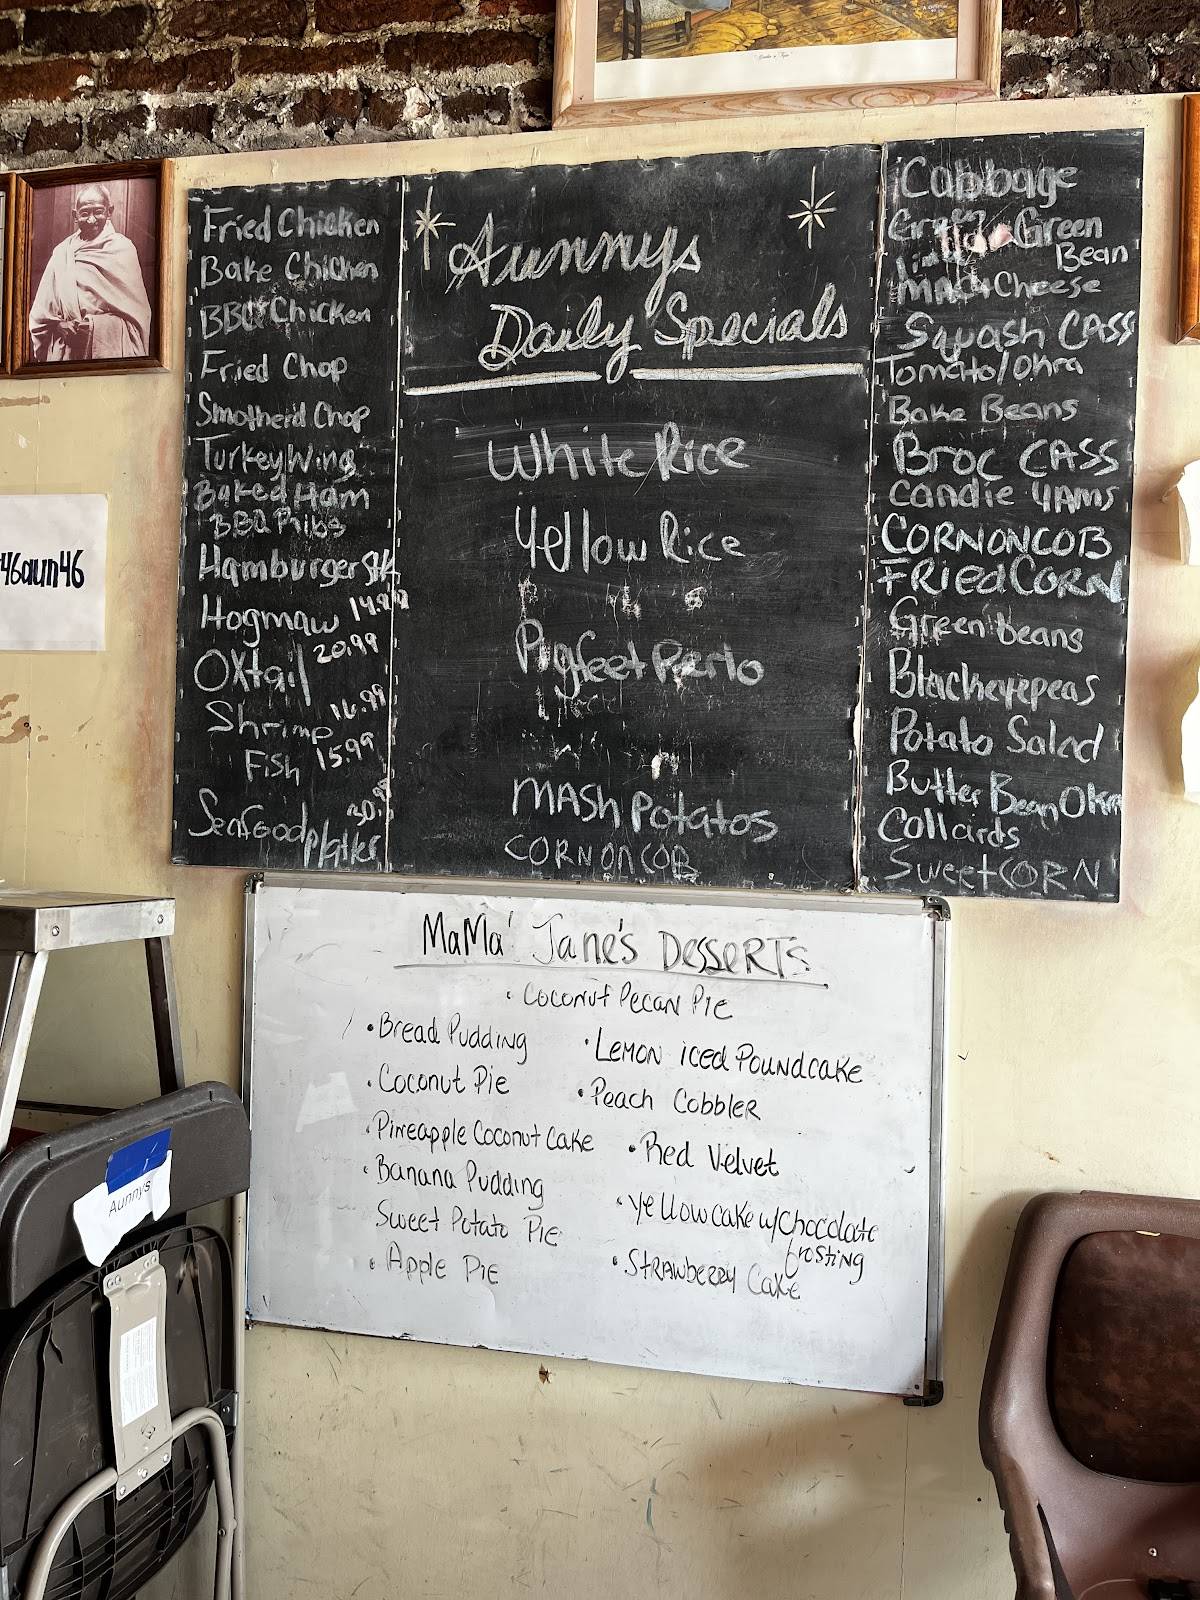 Fried Chicken
Bake Chicken
BBQ Chicken
Fried Chop
Smotherd Chop
Turkey Wing
Baked Ham
BBQ Ribs
Hamburger Stk
Hogmaw 14.99
OXtail 20.99
Shrimp 16.99
Fish 15.99
Seafood platter 30.99
Aunnys
Daily Specials
White Rice
Yellow Rice
Pigfeet Perlo
MASH Potatos
CORN ON COB
Cabbage
Green
Bean
MAC+Cheese
Squash CASS
Tomato/Okra
Bake Beans
Broc CASS
Candie YAMS
CORNONCOB
FRIED CORN
Green beans
Blackeyepeas
Potato Salad
Butter Bean Okra
Collards
Sweet CORN
46aun46
MaMa' Jane's Desserts
• Coconut Pecan Pie
• Bread Pudding
• Coconut Pie
• Pineapple Coconut Cake
• Banana Pudding
Sweet Potato Pie
• Apple Pie
• Lemon iced Poundcake
• Peach Cobbler
• Red Velvet
• Yellow cake w/chocolate
frosting
• Strawberry Cake
Aunnys